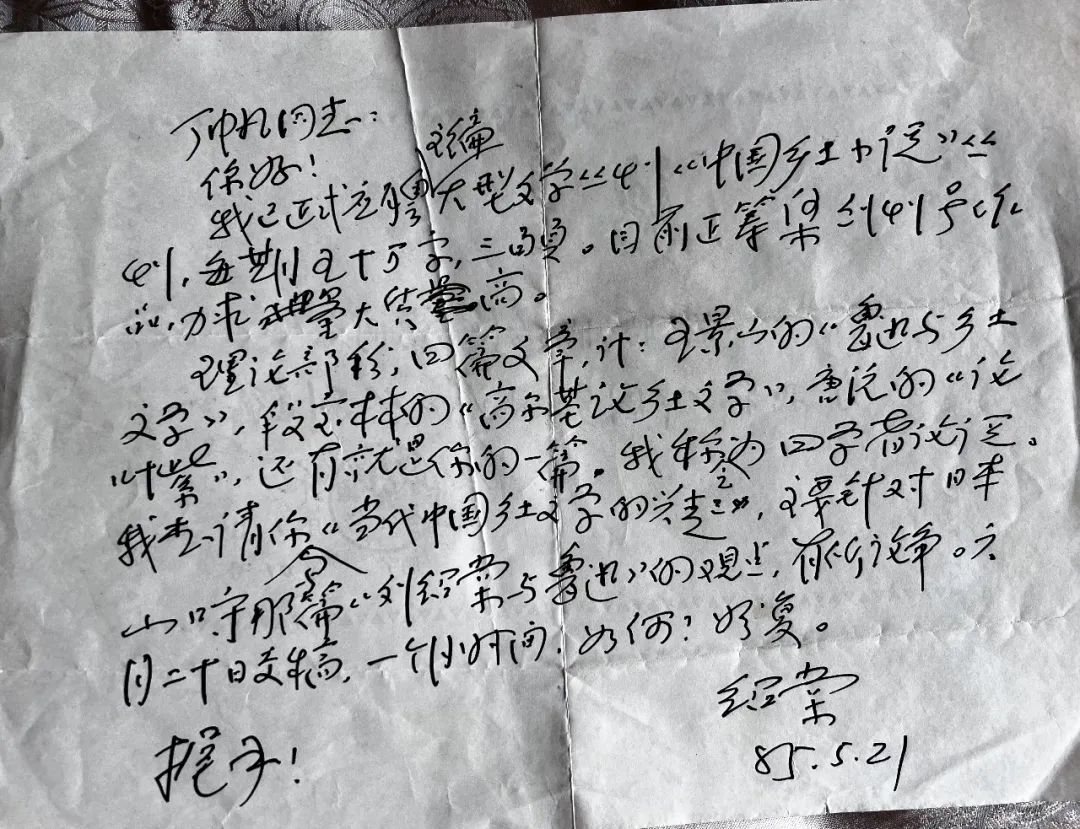 丁帆同志:
你好!
我已正式应聘主编大型文学丛刊《中国乡土小说》丛
刊,每期五十万字,三百页。目前正筹集创刊号作
品,力求量大质高。
理论部分,四篇文章,计:王景山的《鲁迅与乡土
文学》,段宝林的《高尔基论乡土文学》,唐沅的《论
叶紫》,还有就是你的一篇。我称之为四学者论证。
我查请你写《当代中国乡土文学的兴起》,主要针对日本
山口守那篇《刘绍棠与鲁迅》的观点,有所论争。六
月二十日交稿,一个月时间,如何?好复。
绍棠
握手!
85.5.21